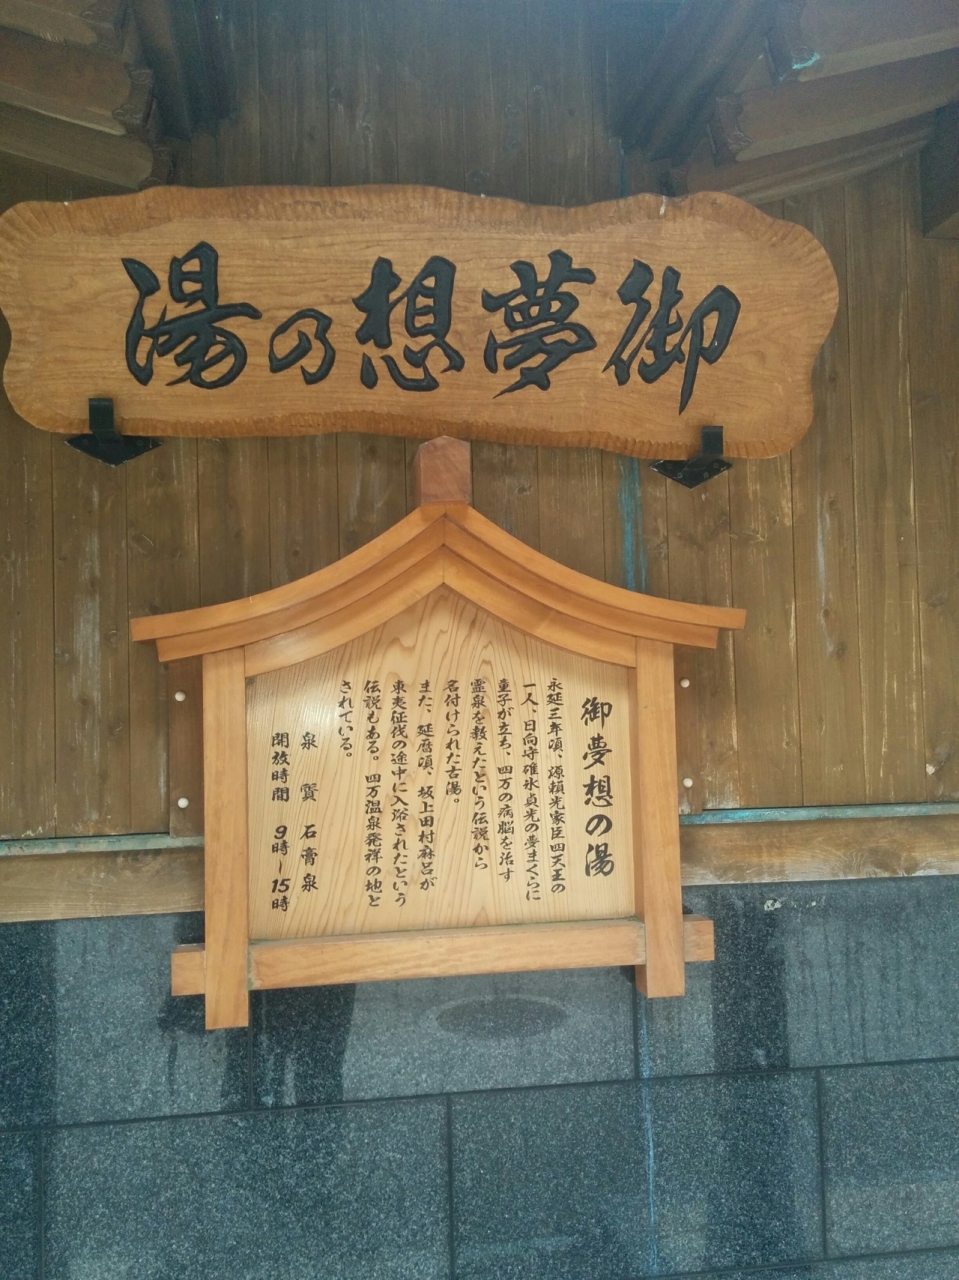 御夢想の湯
御夢想の湯
永延三年頃、源頼光家臣四天王の
一人、日向守碓氷貞光の夢まくらに
童子が立ち、四万の病脳を治す
霊泉を教えたという伝説から
名付けられた古湯。
また、延暦頃、坂上田村麻呂が
東夷征伐の途中に入浴されたという
伝説もある。四万温泉発祥の地と
されている。
泉質 石膏泉
開放時間 9時～15時